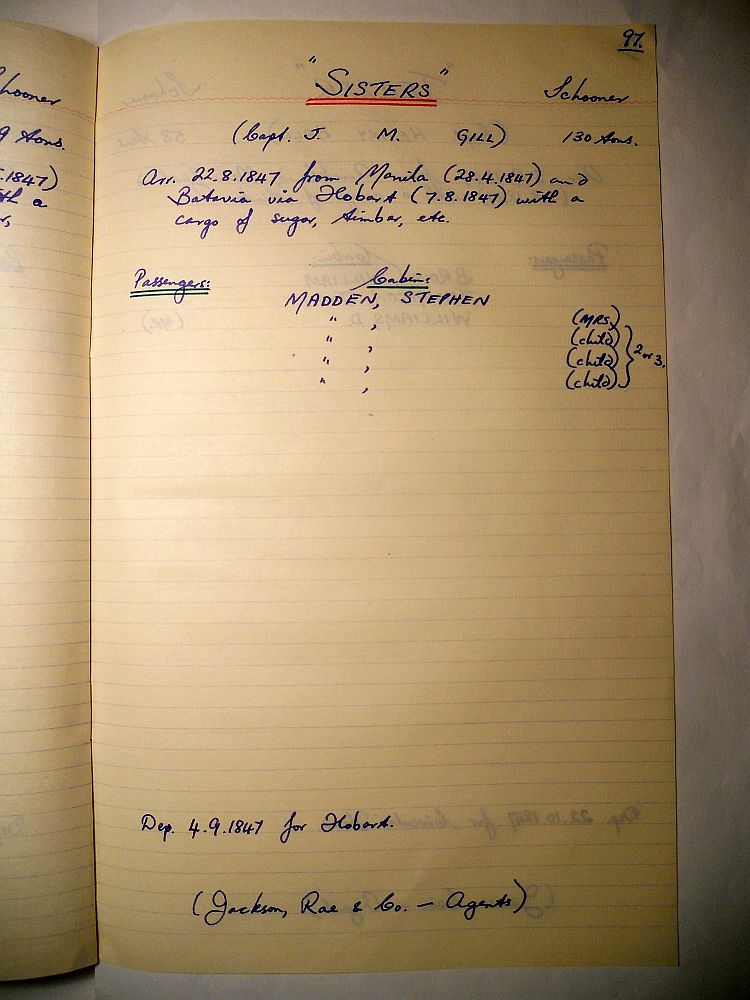 97.
"SISTERS" Schooner
(Capt. J. M. GILL) 130 tons.
Arr. 22.8.1847 from Manila (28.4.1847) and
Batavia via Hobart (7.8.1847) with a
cargo of sugar, timber, etc.
Passengers: Cabin:
MADDEN, STEPHEN
" , (MRS.)
" , (child)
" , (child) } 2 or 3.
" , (child)
Dep. 4.9.1847 for Hobart.
(Jackson, Rae & Co. — Agents)
hooner
9 tons.
.1847)
th a